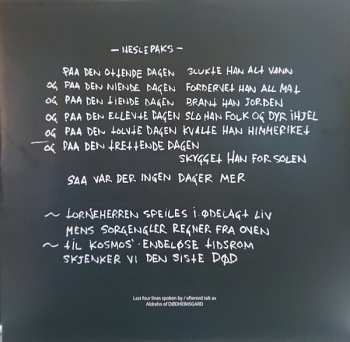 - NESLEPAKS -
PAA DEN OTTENDE DAGEN SLUKTE HAN ALT VANN
OG PAA DEN NIENDE DAGEN FORDERVET HAN ALL MAT
OG PAA DEN TIENDE DAGEN BRANT HAN JORDEN
OG PAA DEN ELLEVTE DAGEN SLO HAN FOLK OG DYR IHJEL
OG PAA DEN TOLVTE DAGEN KVALTE HAN HIMMERIKET
OG PAA DEN TRETTENDE DAGEN
SKYGGET HAN FOR SOLEN
SAA VAR DER INGEN DAGER MER
~ TORNEHERREN SPEILES I ØDELAGT LIV
MENS SORGENGLER REGNER FRA OVEN
~ TIL KOSMOS' ENDELØSE TIDSROM
SKJENKER VI DEN SISTE DØD
Last four lines spoken by / efterord talt av
Aldrahn of DØDHEIMSGARD